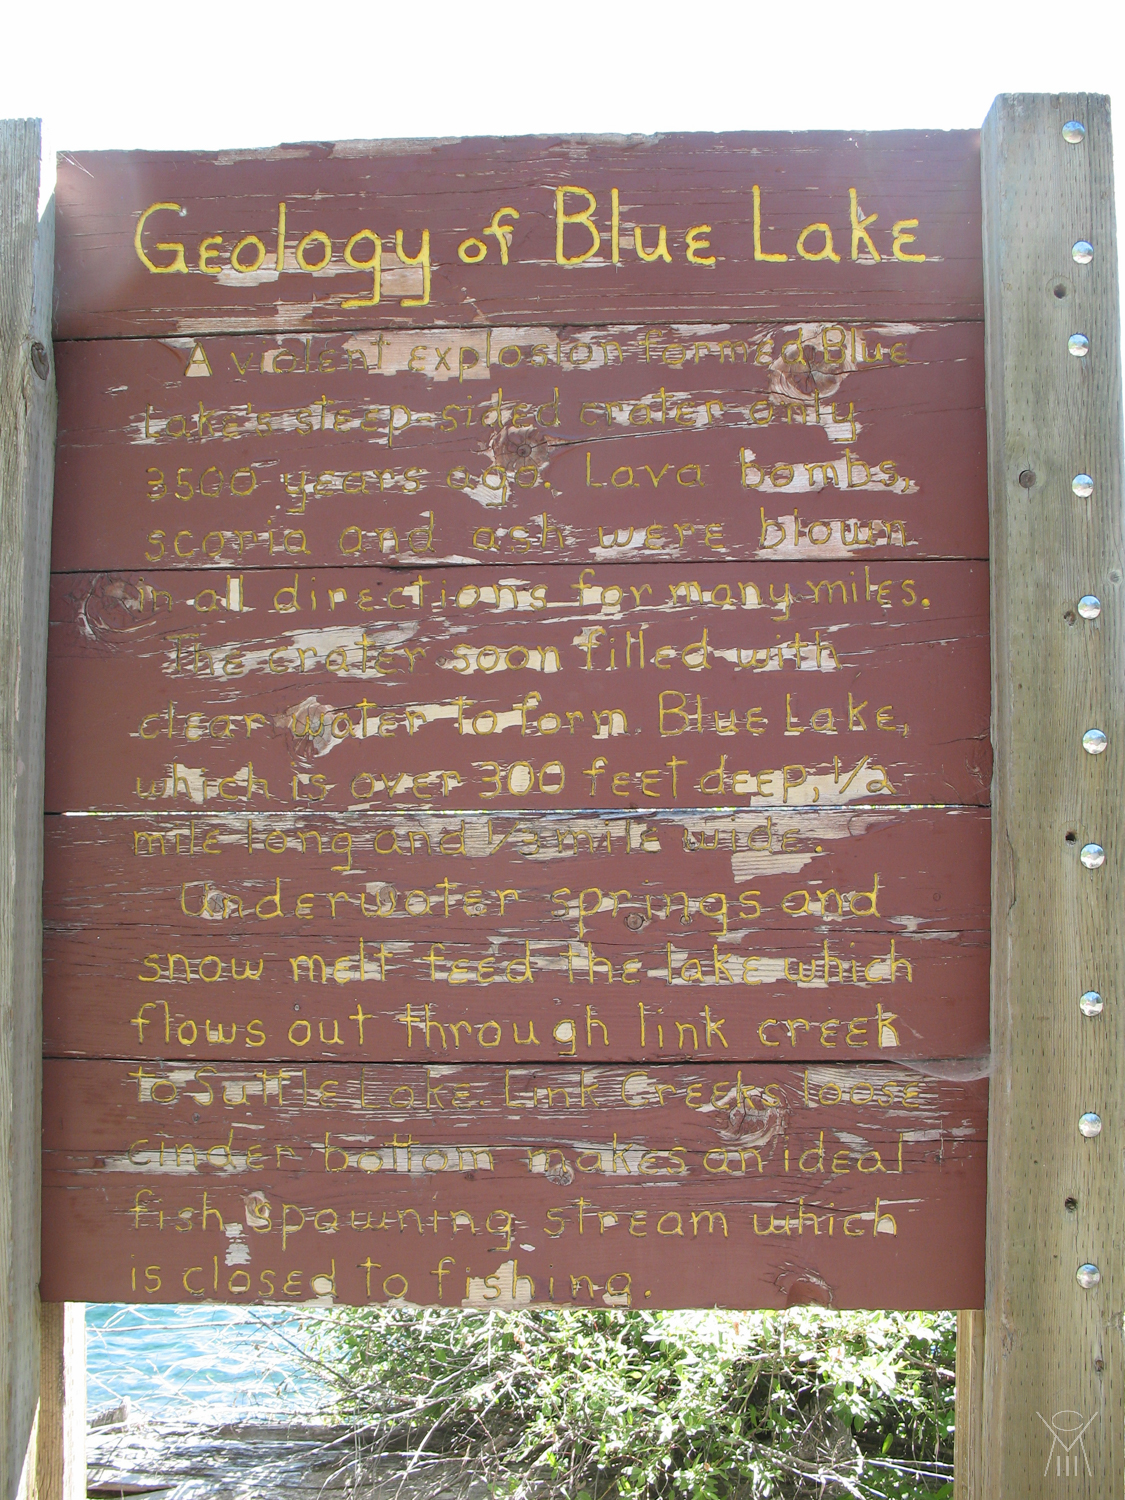 Geology of Blue Lake
A violent explosion formed Blue
Lake's steep-sided crater only
3500 years ago. Lava bombs,
scoria and ash were blown
in all directions for many miles.
The crater soon filled with
clear water to form Blue Lake,
which is over 300 feet deep, 1/2
mile long and 1/3 mile wide.
Underwater springs and
snow melt feed the lake which
flows out through link creek
to Suttle Lake. Link Creeks loose
cinder bottom makes an ideal
fish spawning stream which
is closed to fishing.